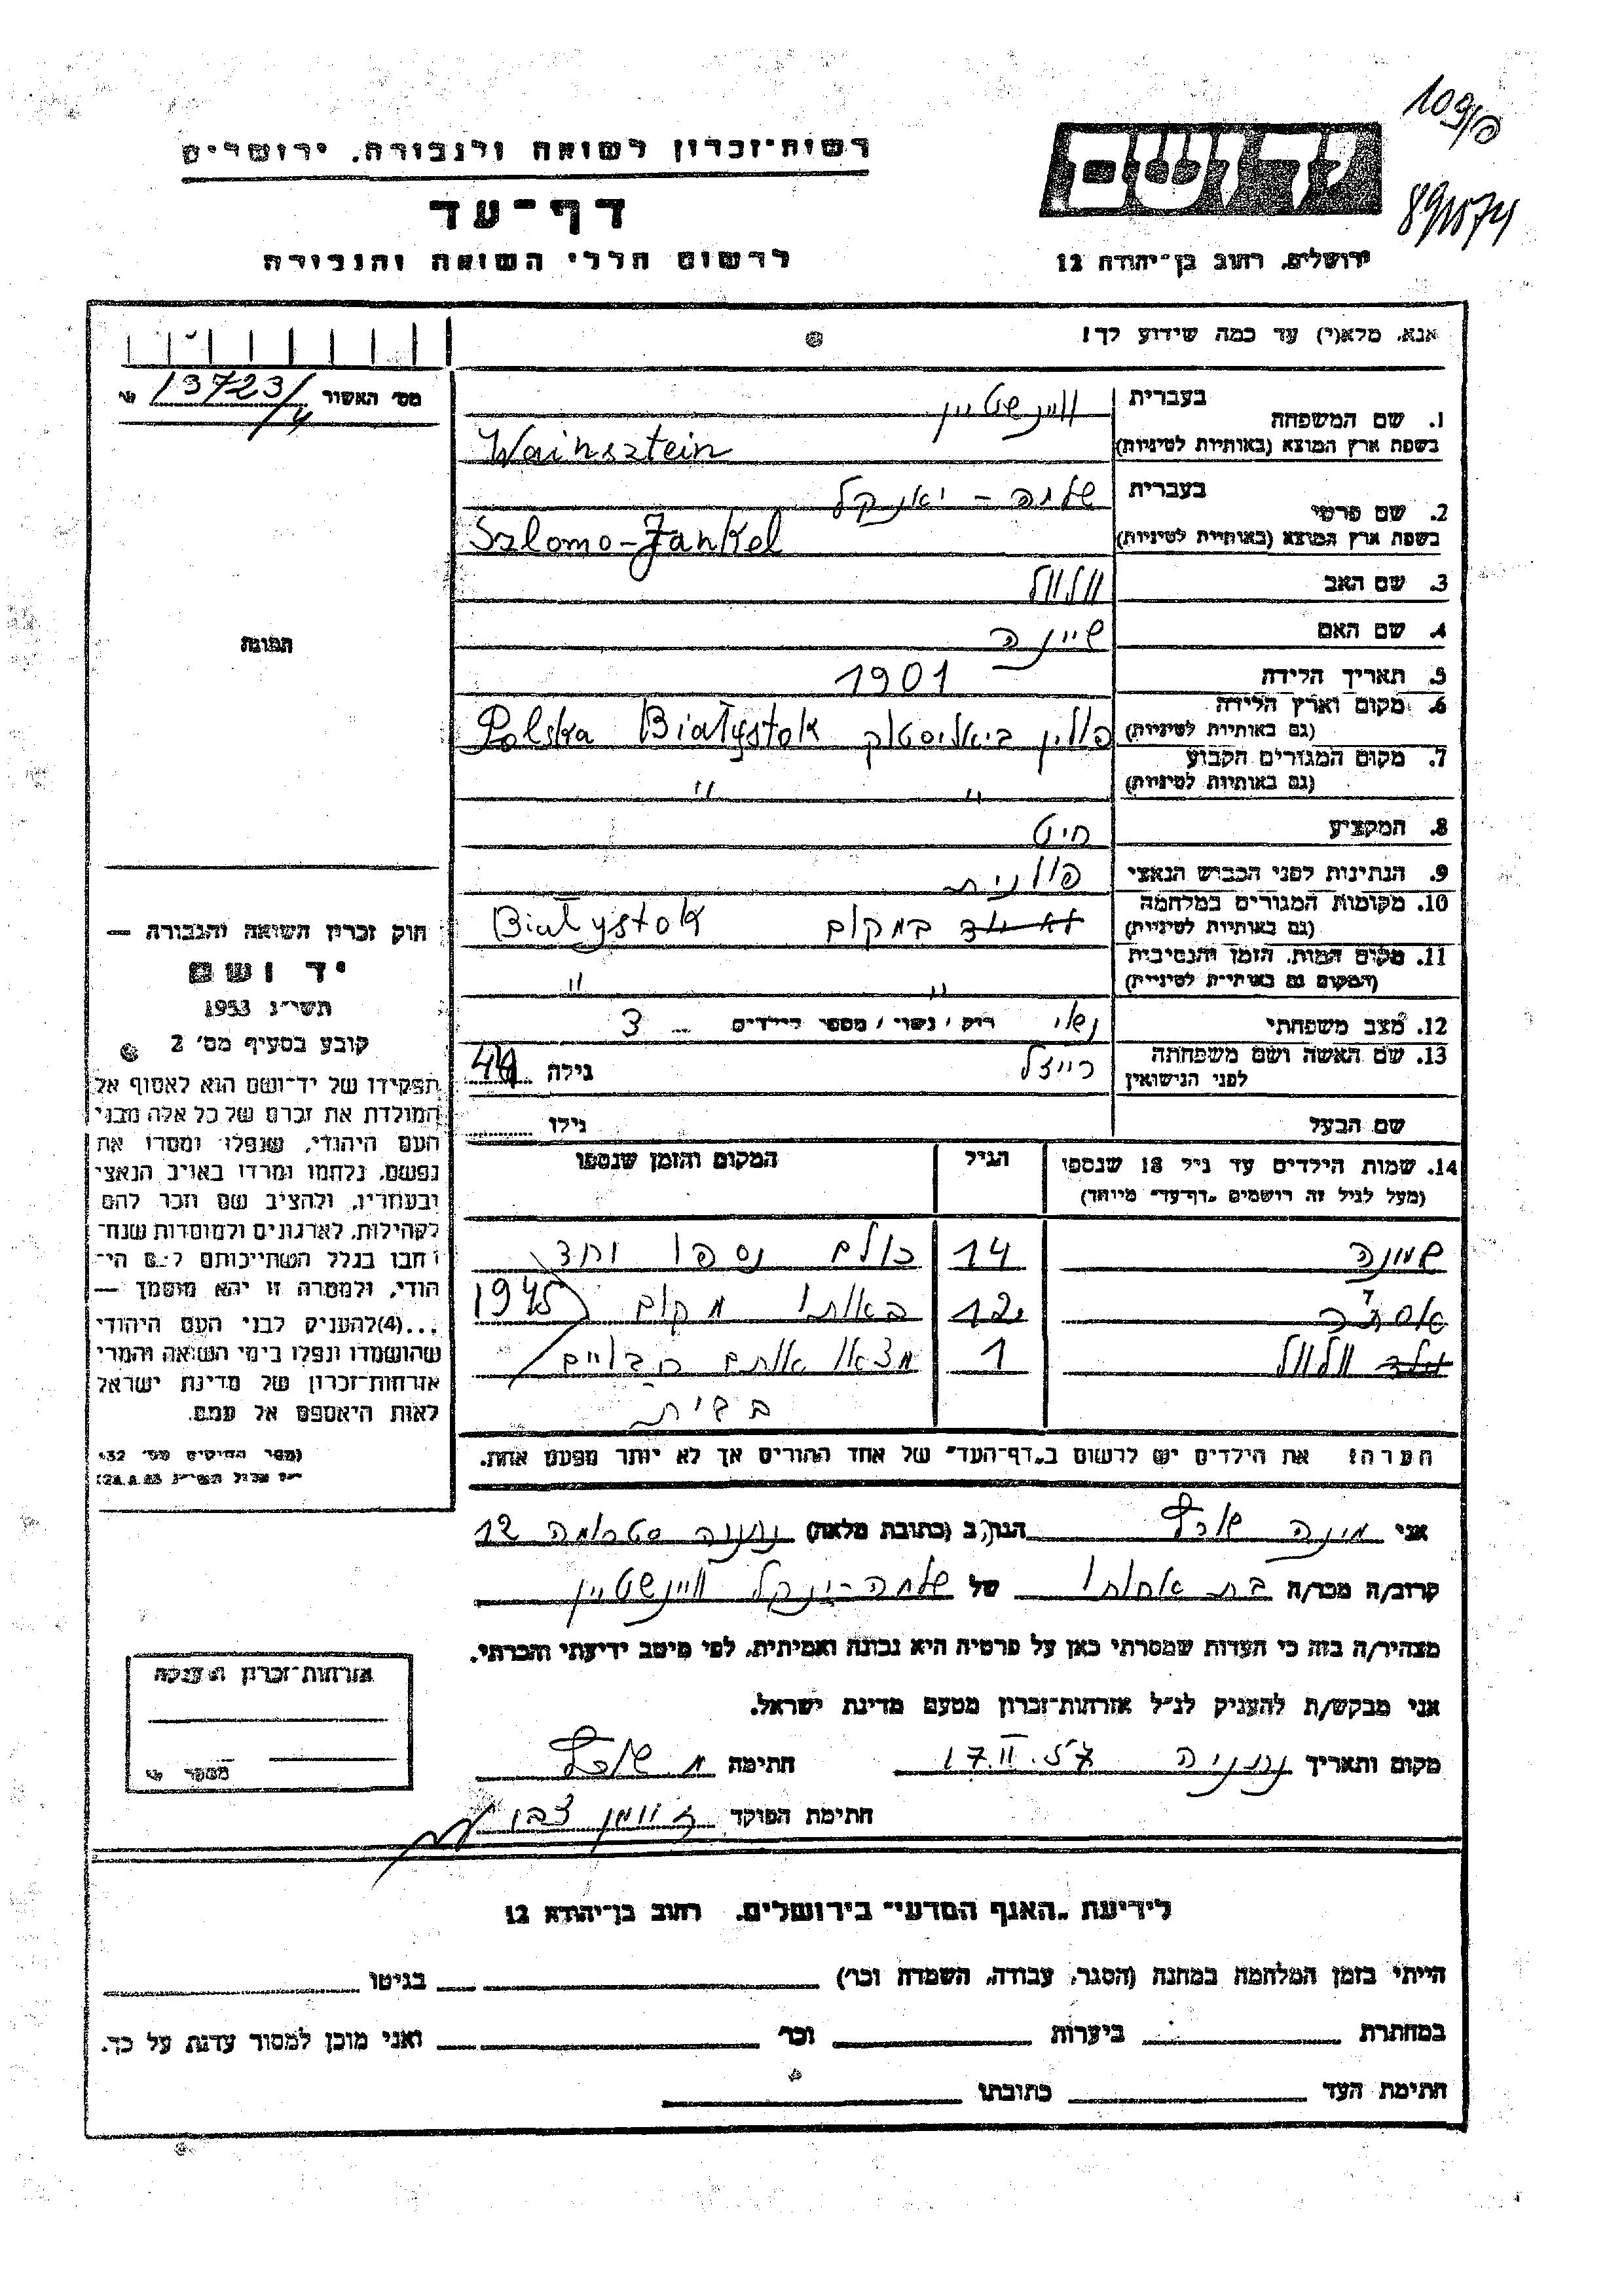 109/0
רשות-זכרון לשואה ולגבורה, ירושלים
דף-עד
לרשום חללי השואה והגבורה
יד ושם
ירושלים, רחוב בן-יהודה 12
אנא, מלא(י) עד כמה שידוע לך!
מס' האשור 13723/4
1. שם המשפחה
בעברית וויינשטיין
בשפת ארץ המוצא (באותיות לטיניות) Wainsztein
2. שם פרטי
בעברית שלמה - יאנקל
בשפת ארץ המוצא (באותיות לטיניות) Szlomo-Jankel
3. שם האב וולוול
4. שם האם שיינה
5. תאריך הלידה 1901
6. מקום וארץ הלידה (גם באותיות לטיניות) פולין ביאליסטוק Białystok Polska
7. מקום המגורים הקבוע (גם באותיות לטיניות) " "
8. המקצוע חיט
9. הנתינות לפני הכבוש הנאצי פולנית
10. מקומות המגורים במלחמה (גם באותיות לטיניות) במקום Białystok
11. מקום המות, הזמן והנסיבות (המקום גם באותיות לטיניות) " "
12. מצב משפחתי נשוי רווק / נשוי / מספר הילדים 3
13. שם האשה ושם משפחתה לפני הנישואין רייזל גילה
שם הבעל גילו
14. שמות הילדים עד גיל 18 שנספו
(מעל לגיל זה רושמים "דף-עד" מיוחד)
הגיל
המקום והזמן שנספו
14 כולם נספו יחד
אסתר 12 באותו מקום 1945
וולוול 1 מצאו אותם
בבית
הערה: את הילדים יש לרשום ב"דף-העד" של אחד ההורים אך לא יותר מפעם אחת.
התמונה
חוק זכרון השואה והגבורה —
יד ושם
תשי"ג 1953
קובע בסעיף מס' 2
תפקידו של יד-ושם הוא לאסוף אל
המולדת את זכרם של כל אלה מבני
העם היהודי, שנפלו ומסרו את
נפשם, נלחמו ומרדו באויב הנאצי
ובעוזריו, ולהציב שם וזכר להם
לקהילות, לארגונים ולמוסדות שנח-
רבו בגלל השתייכותם לעם הי-
הודי, ולמטרה זו יהא מוסמך —
...(4) להעניק לבני העם היהודי
שהושמדו ונפלו בימי השואה והמרי
אזרחות-זכרון של מדינת ישראל
לאות היאספם אל עמם.
(ספר החוקים מס' 132
אני מינה הגר/ה ב (כתובת מלאה) נתניה 12
קרוב/ה מכר/ה בת אחותו של שלמה-ינקל וויינשטיין
מצהיר/ה בזה כי העדות שמסרתי כאן על פרטיה היא נכונה ואמיתית, לפי מיטב ידיעתי והכרתי.
אני מבקש/ת להעניק לנ"ל אזרחות-זכרון מטעם מדינת ישראל.
מקום ותאריך נתניה 17.II.57 חתימה
חתימת הפוקד
אזרחות-זכרון הוענקה
מספר
לידיעת "האגף המדעי" בירושלים, רחוב בן-יהודה 12
הייתי בזמן המלחמה במחנה (הסגר, עבודה, השמדה וכו') בגיטו
במחתרת ביערות וכו' ואני מוכן למסור עדות על כך.
חתימת העד כתובתו